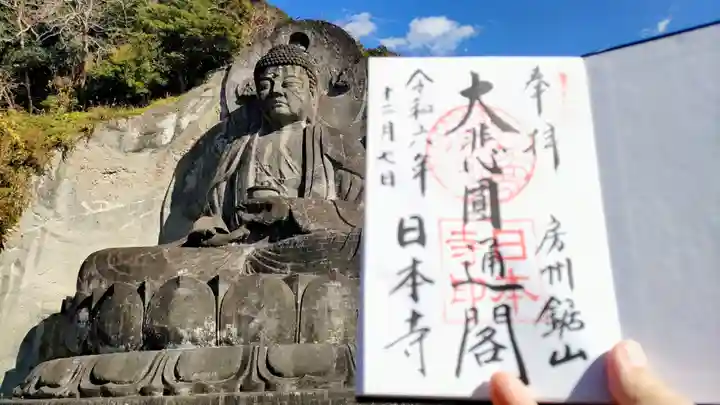 奉拝
房州鋸山
大悲圓通閣
日本寺印
令和六年
十二月七日
日本寺